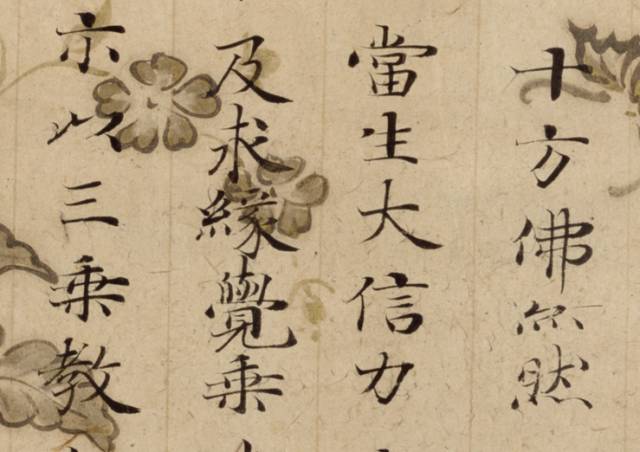 十方佛亦然
當生大信力
及求緣覺乘
示以三乘教